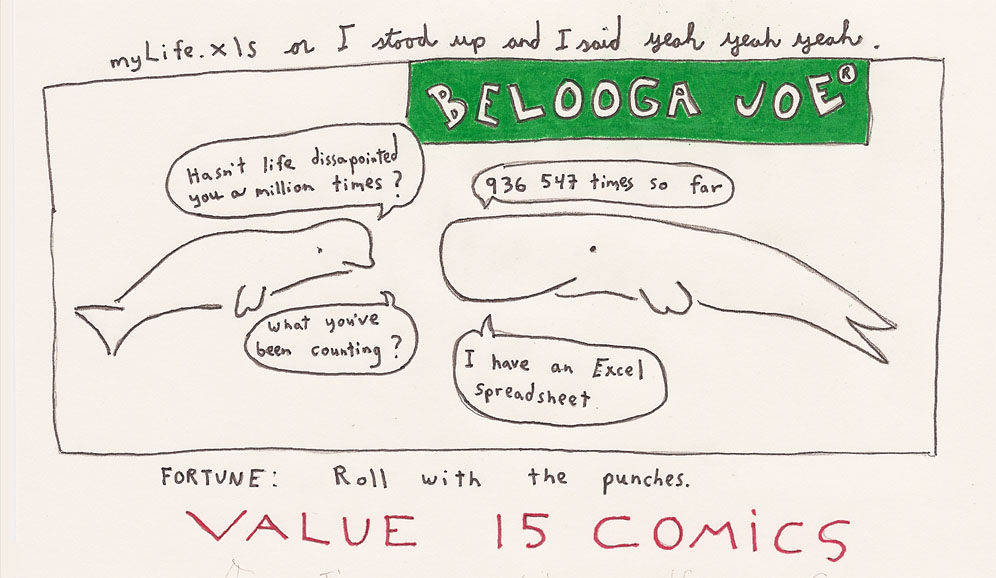 myLife.xls or I stood up and I said yeah yeah yeah.
BELOOGA JOE®
Hasn't life dissapointed
you a million times?
936 547 times so far
what you've
been counting?
I have an Excel
spreadsheet
FORTUNE: Roll with the punches.
VALUE 15 COMICS